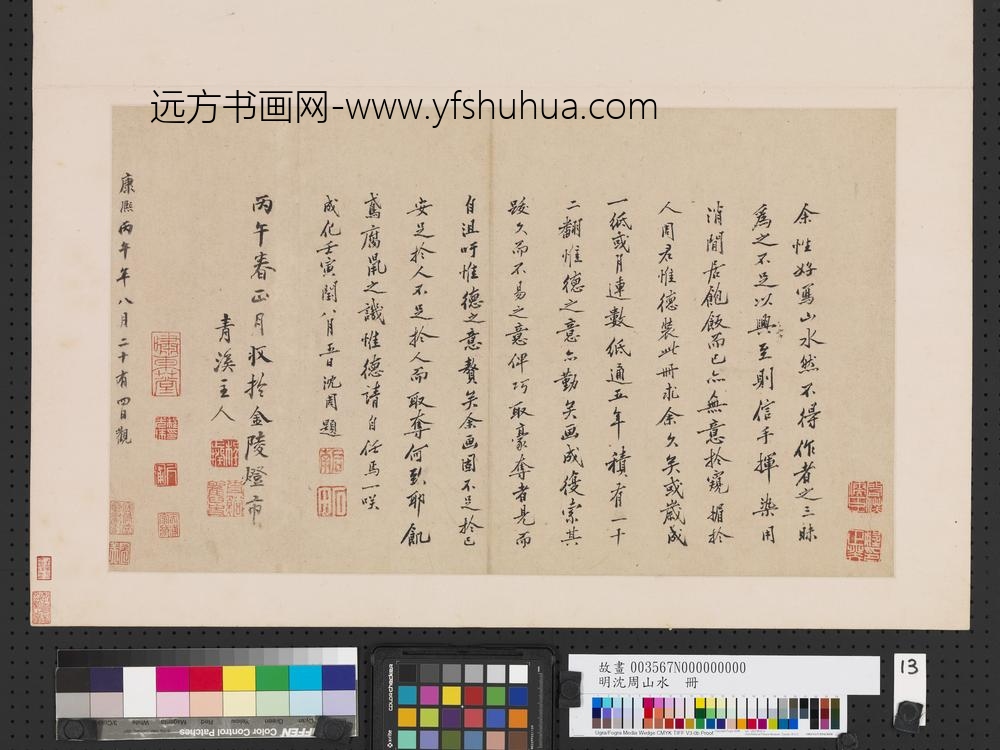 远方书画网-www.yfshuhua.com
余性好寫山水然不得作者之三昧
為之不足以興至則信手揮染用
消閒居飽飯而已亦無意於窺媚於
人周君惟德裝此冊求余久矣或歲成
一紙或月連數紙通五年積有一十
二翻惟德之意亦勤矣画成復索其
跋久而不易之意俾巧取豪奪者見而
自沮吁惟德之意贅矣余画固不足於己
安足於人不足於人而取奪何致耶飢
鳶腐鼠之譏惟德請自任焉一咲
成化壬寅閏八月五日沈周題
丙午春正月收於金陵燈市
青溪主人
康熙丙午年八月二十有四日觀
故畫 003567N000000000
明沈周山水 冊
13
Color Control Patches
colorchecker
Ugra/Fogra Media Wedge CMYK TIFF V3.0b Proof